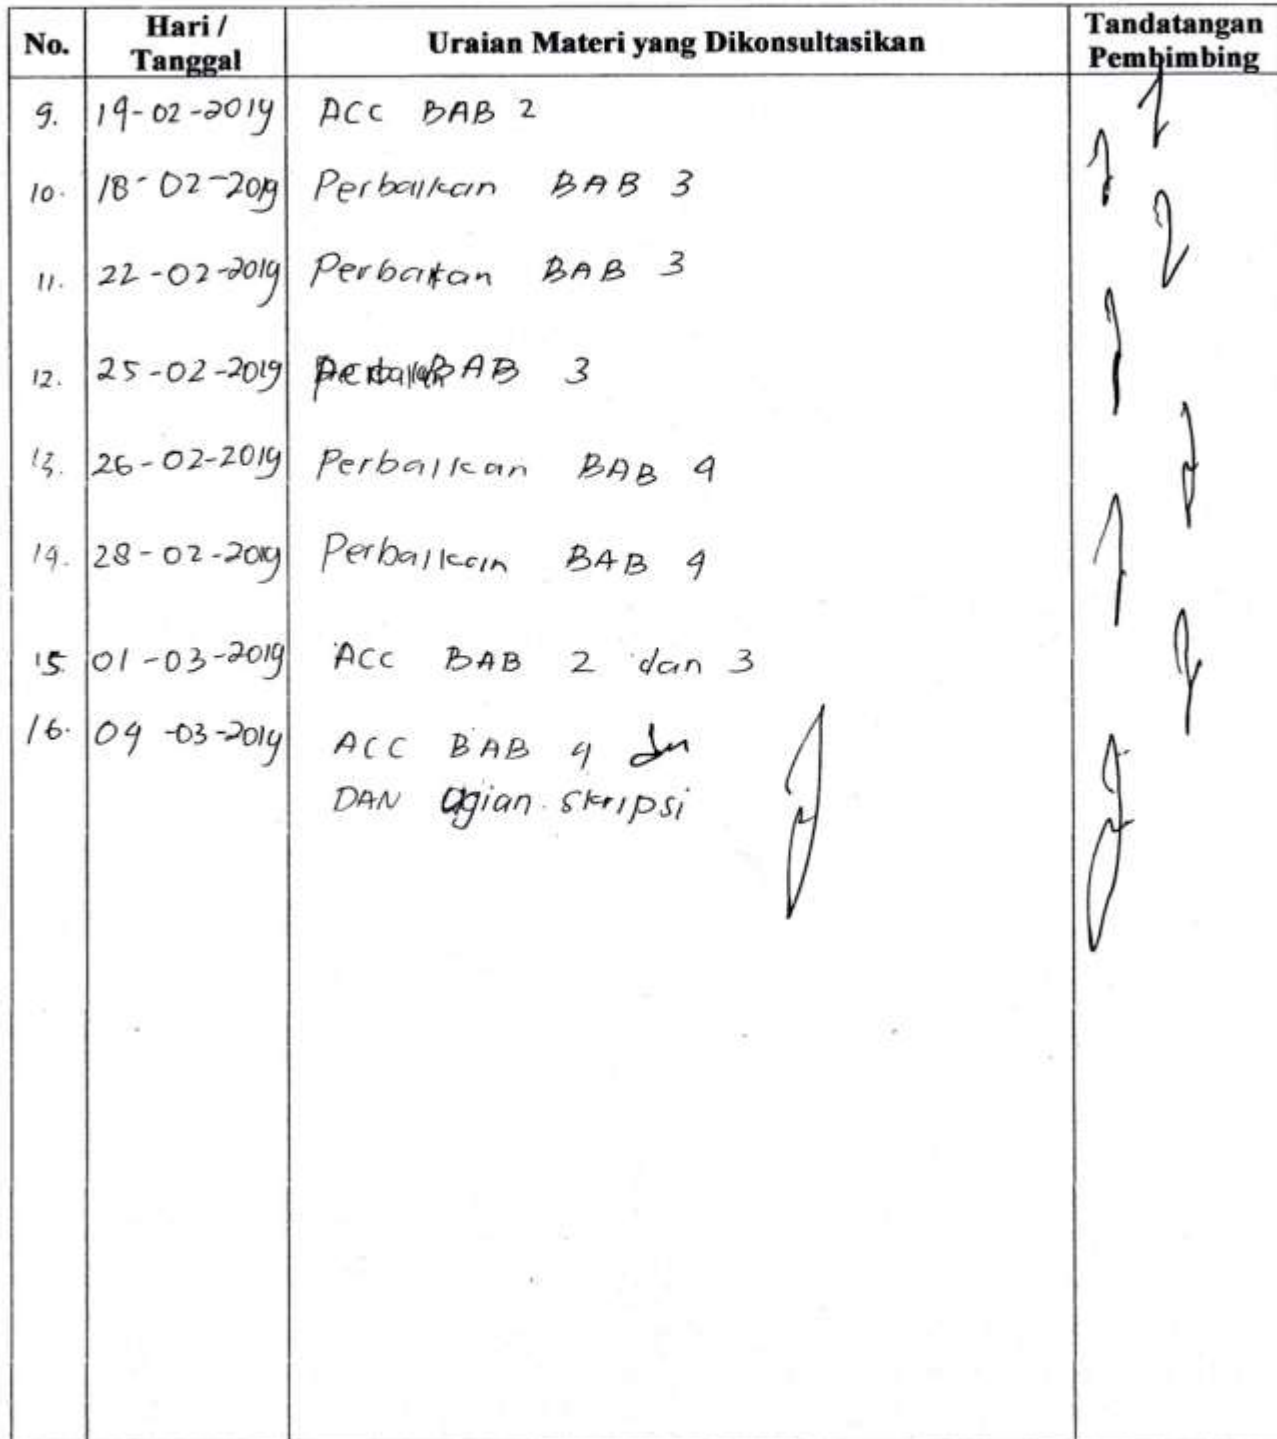 No. Hari / Tanggal Uraian Materi yang Dikonsultasikan Tandatangan Pembimbing
9. 14-02-2019 ACC BAB 2
10. 18-02-2019 Perbaikan BAB 3
11. 22-02-2019 Perbaikan BAB 3
12. 25-02-2019 BAB 3
13. 26-02-2019 Perbaikan BAB 4
14. 28-02-2019 Perbaikan BAB 4
15. 01-03-2019 ACC BAB 2 dan 3
16. 04-03-2019 ACC BAB 4
DAN Ugian skripsi